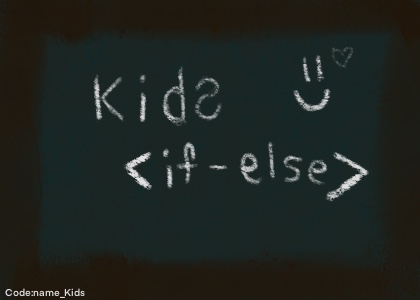 Kids
<if-else>
Code:name_Kids